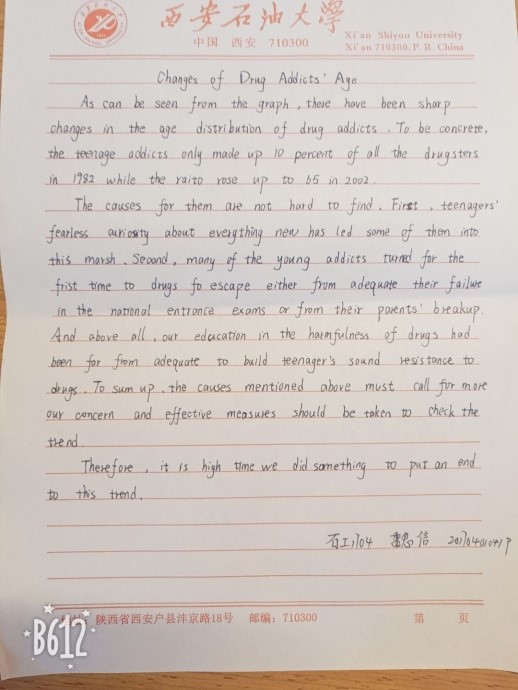 西安石油大學
中国 西安 710300
Xi'an Shiyou University
Xi'an 710300, P. R. China
Changes of Drug Addicts' Age
As can be seen from the graph, there have been sharp
changes in the age distribution of drug addicts. To be concrete,
the teenage addicts only made up 10 percent of all the drugsters
in 1982 while the raito rose up to 65 in 2002.
The causes for them are not hard to find. First, teenagers'
fearless curiosity about everything new has led some of them into
this marsh. Second, many of the young addicts turned for the
frist time to drugs fo escape either from adequate their failure
in the national entrance exams or from their parents' breakup.
And above all, our education in the harmfulness of drugs had
been for from adequate to build teenager's sound resistance to
drugs. To sum up, the causes mentioned above must call for more
our concern and effective measures should be taken to check the
trend.
Therefore, it is high time we did something to put an end
to this trend.
石工1704
陕西省西安户县沣京路18号 邮编：710300 第 页
B612